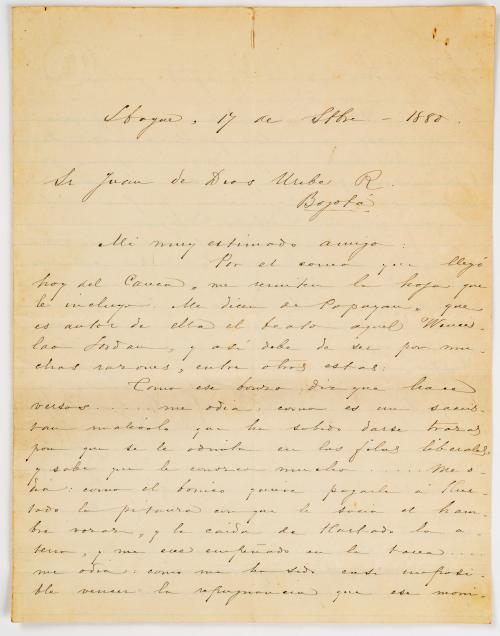 Ibague, 17 de Stbre - 1880.
Sr Juan de Dios Uribe R.
Bogotá
Mi muy estimado amigo:
Por el correo que llegó
hoy del Cauca, me remiten la hoja que
le incluyo. Me dicen de Popayan, que
es autor de ella el beato aquel Wences-
lao Jordan, y así debe de ser por mu-
chas razones, entre otras estas:
Como ese bonzo diz que hace
versos..... me odia: como es un sacris-
tan que ha sabido darse trazas
para que se le admita en las filas liberales
y sabe que le conozco mucho..... me o-
dia: como el bonzo quiere pagarle á Hur-
tado la pitanza con que le sacia el ham-
bre voraz, y la caida de Hurtado lo a-
terra, y me cree empeñado en la tarea....
me odia: como me ha sido casi imposi-
ble vencer la repugnancia que ese